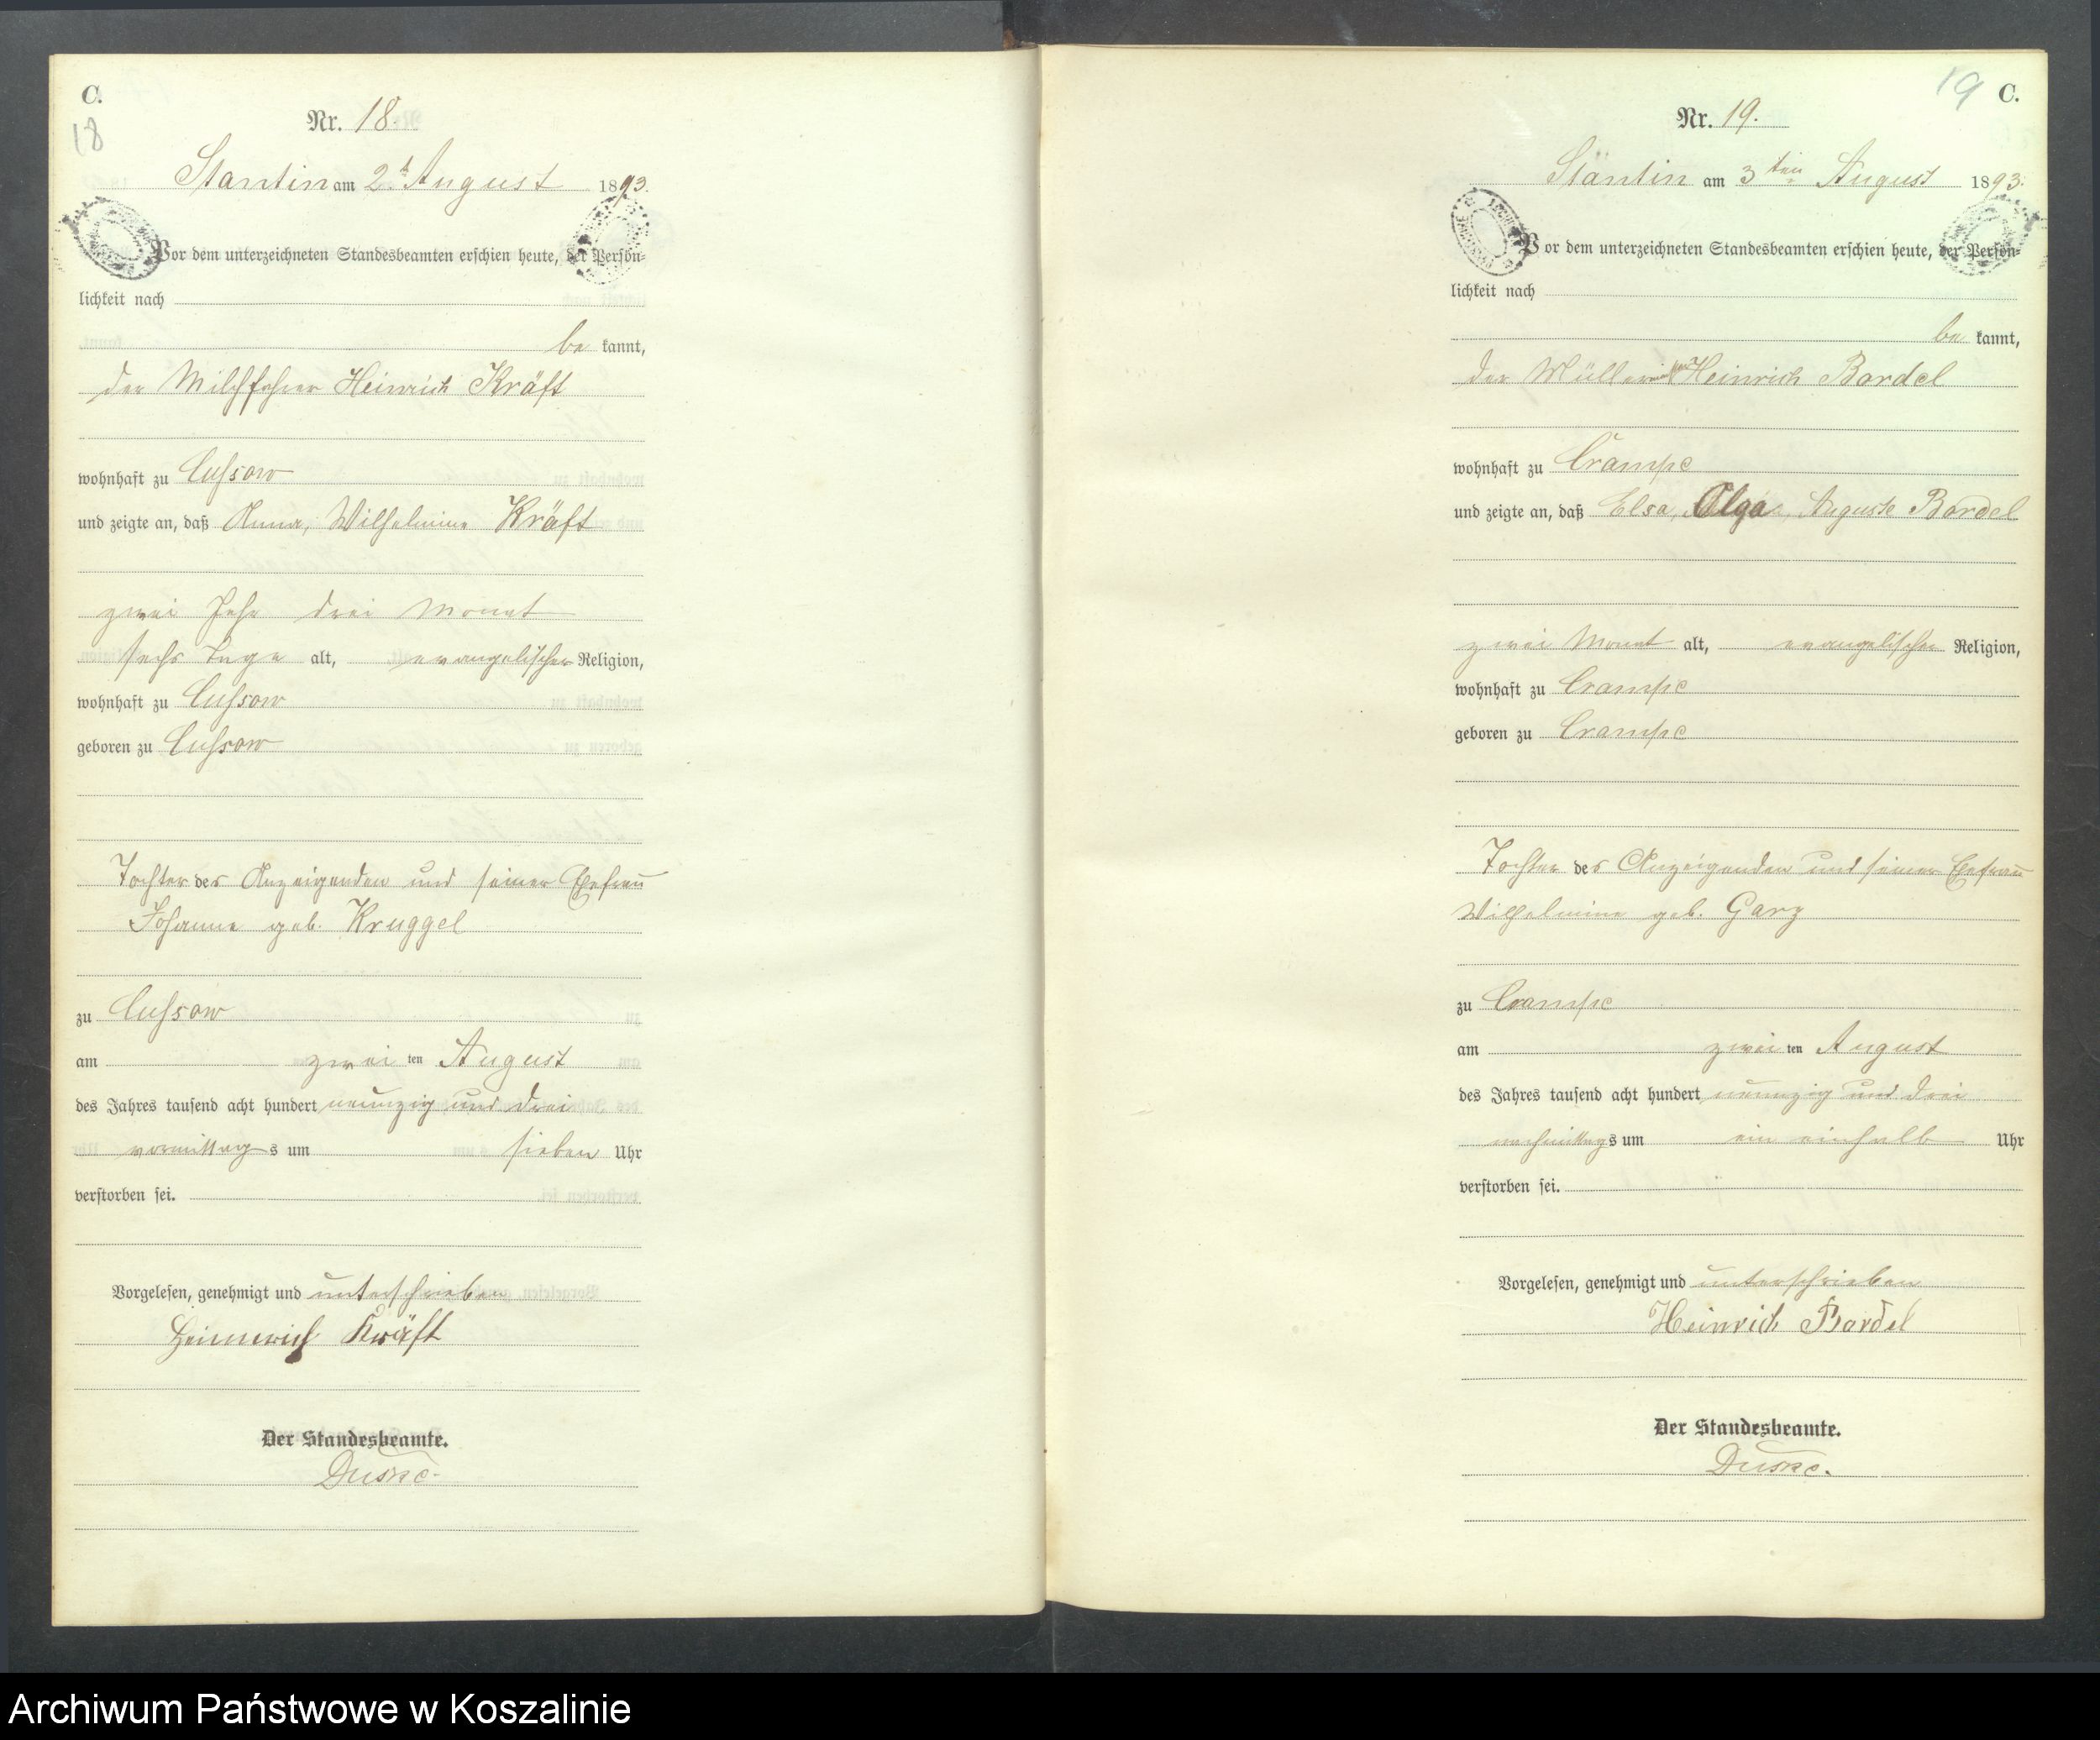 C.
18
Nr. 18.
Stantin am 2t August 1893.
Vor dem unterzeichneten Standesbeamten erschien heute, der Persön-
lichkeit nach
be kannt,
der Milchfahrer Heinrich Kräft
wohnhaft zu Cussow
und zeigte an, daß Anna, Wilhelmine Kräft
zwei Jahr drei Monat
sechs Tage alt, evangelischer Religion,
wohnhaft zu Cussow
geboren zu Cussow
Tochter des Anzeigenden und seiner Ehefrau
Johanne geb. Kruggel
zu Cussow
am zwei ten August
des Jahres tausend acht hundert neunzig und drei
vormittag s um sieben Uhr
verstorben sei.
Vorgelesen, genehmigt und unterschrieben
Heinnrich Kräft
Der Standesbeamte.
19 C.
Nr. 19.
Stantin am 3ten August 1893.
Vor dem unterzeichneten Standesbeamten erschien heute, der Persön-
lichkeit nach
be kannt,
der Heinrich Bardel
wohnhaft zu Crampe
und zeigte an, daß Elsa, Olga, Auguste Bardel
zwei Monat alt, evangelischer Religion,
wohnhaft zu Crampe
geboren zu Crampe
Tochter des Anzeigenden und seiner Ehefrau
Wilhelmine geb. Garz
zu Crampe
am zwei ten August
des Jahres tausend acht hundert neunzig und drei
nachmittag s um ein einhalb Uhr
verstorben sei.
Vorgelesen, genehmigt und unterschrieben
Heinrich Bardel
Der Standesbeamte.
Archiwum Państwowe w Koszalinie